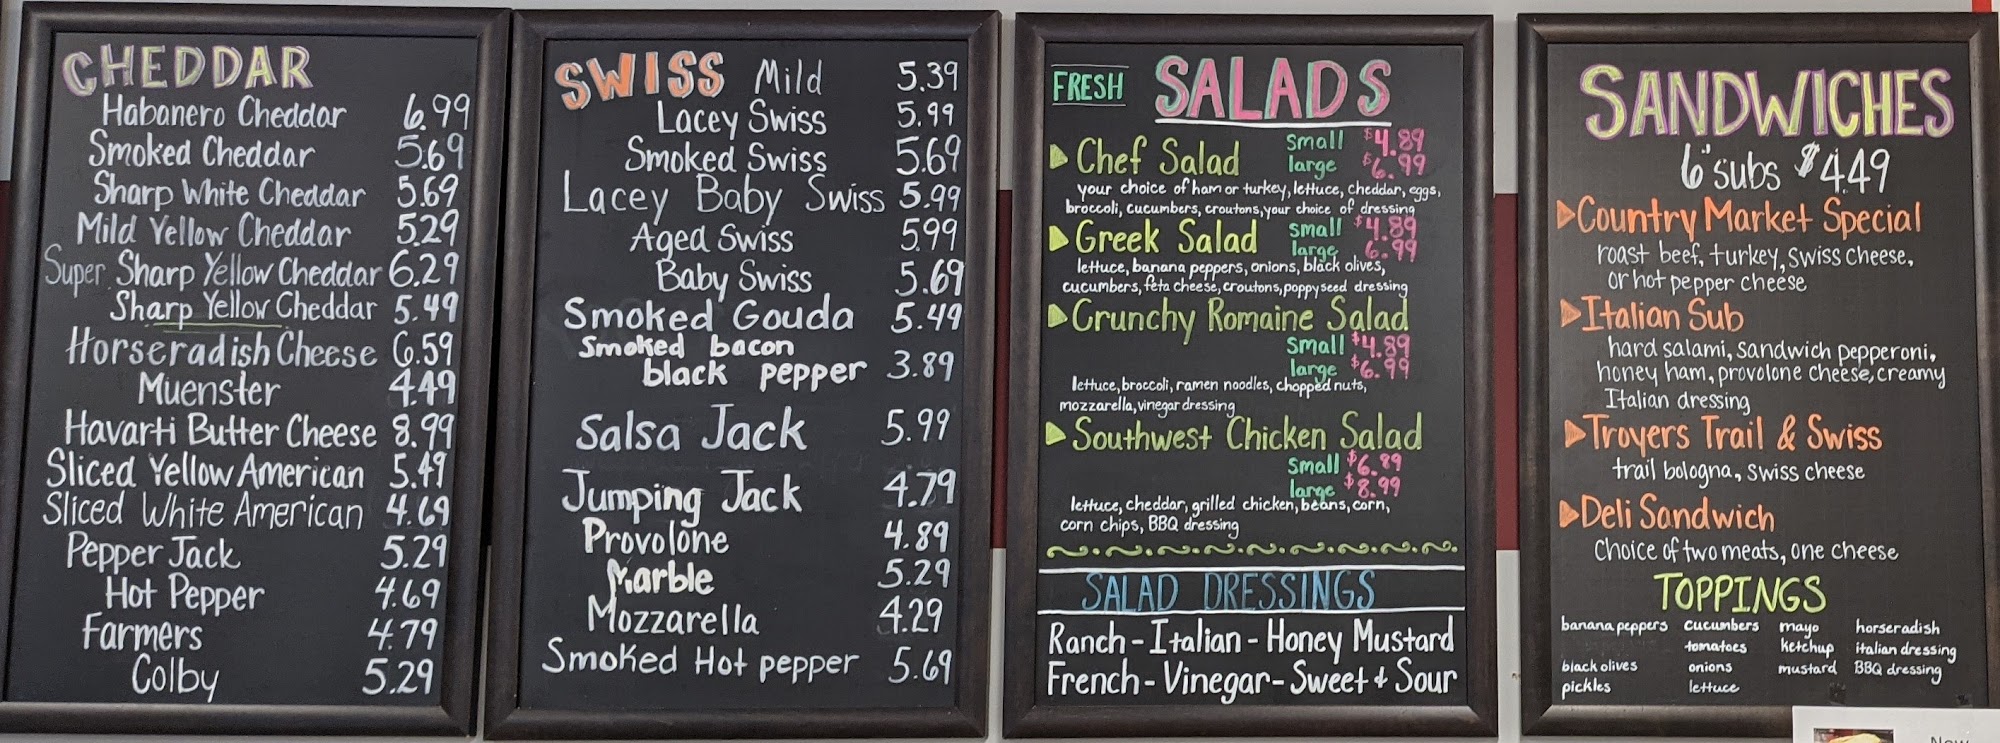 CHEDDAR
Habanero Cheddar 6.99
Smoked Cheddar 5.69
Sharp White Cheddar 5.69
Mild Yellow Cheddar 5.29
Super Sharp Yellow Cheddar 6.29
Sharp Yellow Cheddar 5.49
Horseradish Cheese 6.59
Muenster 4.49
Havarti Butter Cheese 8.99
Sliced Yellow American 5.49
Sliced White American 4.69
Pepper Jack 5.29
Hot Pepper 4.69
Farmers 4.79
Colby 5.29
SWISS Mild 5.39
Lacey Swiss 5.99
Smoked Swiss 5.69
Lacey Baby Swiss 5.99
Aged Swiss 5.99
Baby Swiss 5.69
Smoked Gouda 5.49
Smoked bacon
black pepper 3.89
Salsa Jack 5.99
Jumping Jack 4.79
Provolone 4.89
Marble 5.29
Mozzarella 4.29
Smoked Hot pepper 5.69
FRESH SALADS
Chef Salad small $4.89
large $6.99
your choice of ham or turkey, lettuce, cheddar, eggs,
broccoli, cucumbers, croutons, your choice of dressing
Greek Salad small $4.89
large 6.99
lettuce, banana peppers, onions, black olives,
cucumbers, feta cheese, croutons, poppyseed dressing
Crunchy Romaine Salad
small $4.89
large $6.99
lettuce, broccoli, ramen noodles, chopped nuts,
mozzarella, vinegar dressing
Southwest Chicken Salad
small $6.89
large $8.99
lettuce, cheddar, grilled chicken, beans, corn,
corn chips, BBQ dressing
SALAD DRESSINGS
Ranch - Italian - Honey Mustard
French - Vinegar - Sweet & Sour
SANDWICHES
6" subs $4.49
Country Market Special
roast beef, turkey, swiss cheese,
or hot pepper cheese
Italian Sub
hard salami, sandwich pepperoni,
honey ham, provolone cheese, creamy
Italian dressing
Troyers Trail & Swiss
trail bologna, swiss cheese
Deli Sandwich
Choice of two meats, one cheese
TOPPINGS
banana peppers cucumbers mayo horseradish
tomatoes ketchup italian dressing
black olives onions mustard BBQ dressing
pickles lettuce